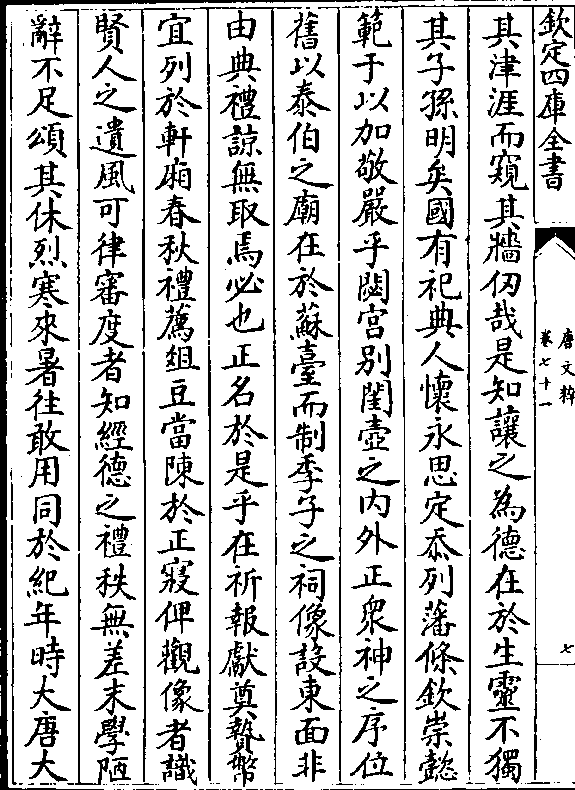 欽定四庫全書
唐文粹
卷七十一
七
其津涯而窺其牆仭哉是知讓之為德在於生靈不獨
其子孫明矣國有祀典人懷永思定忝列藩條欽崇懿
範于以加敬嚴乎閟宫别閨壼之内外正衆神之序位
舊以泰伯之廟在於蘇臺而制季子之祠像設東面非
由典禮諒無取焉必也正名於是乎在祈報獻奠贄幣
宜列於軒廂春秋禮薦俎豆當陳於正寢俾觀像者識
賢人之遺風可律審度者知經德之禮秩無差末學陋
辭不足頌其休烈寒來暑往敢用同於紀年時大唐大